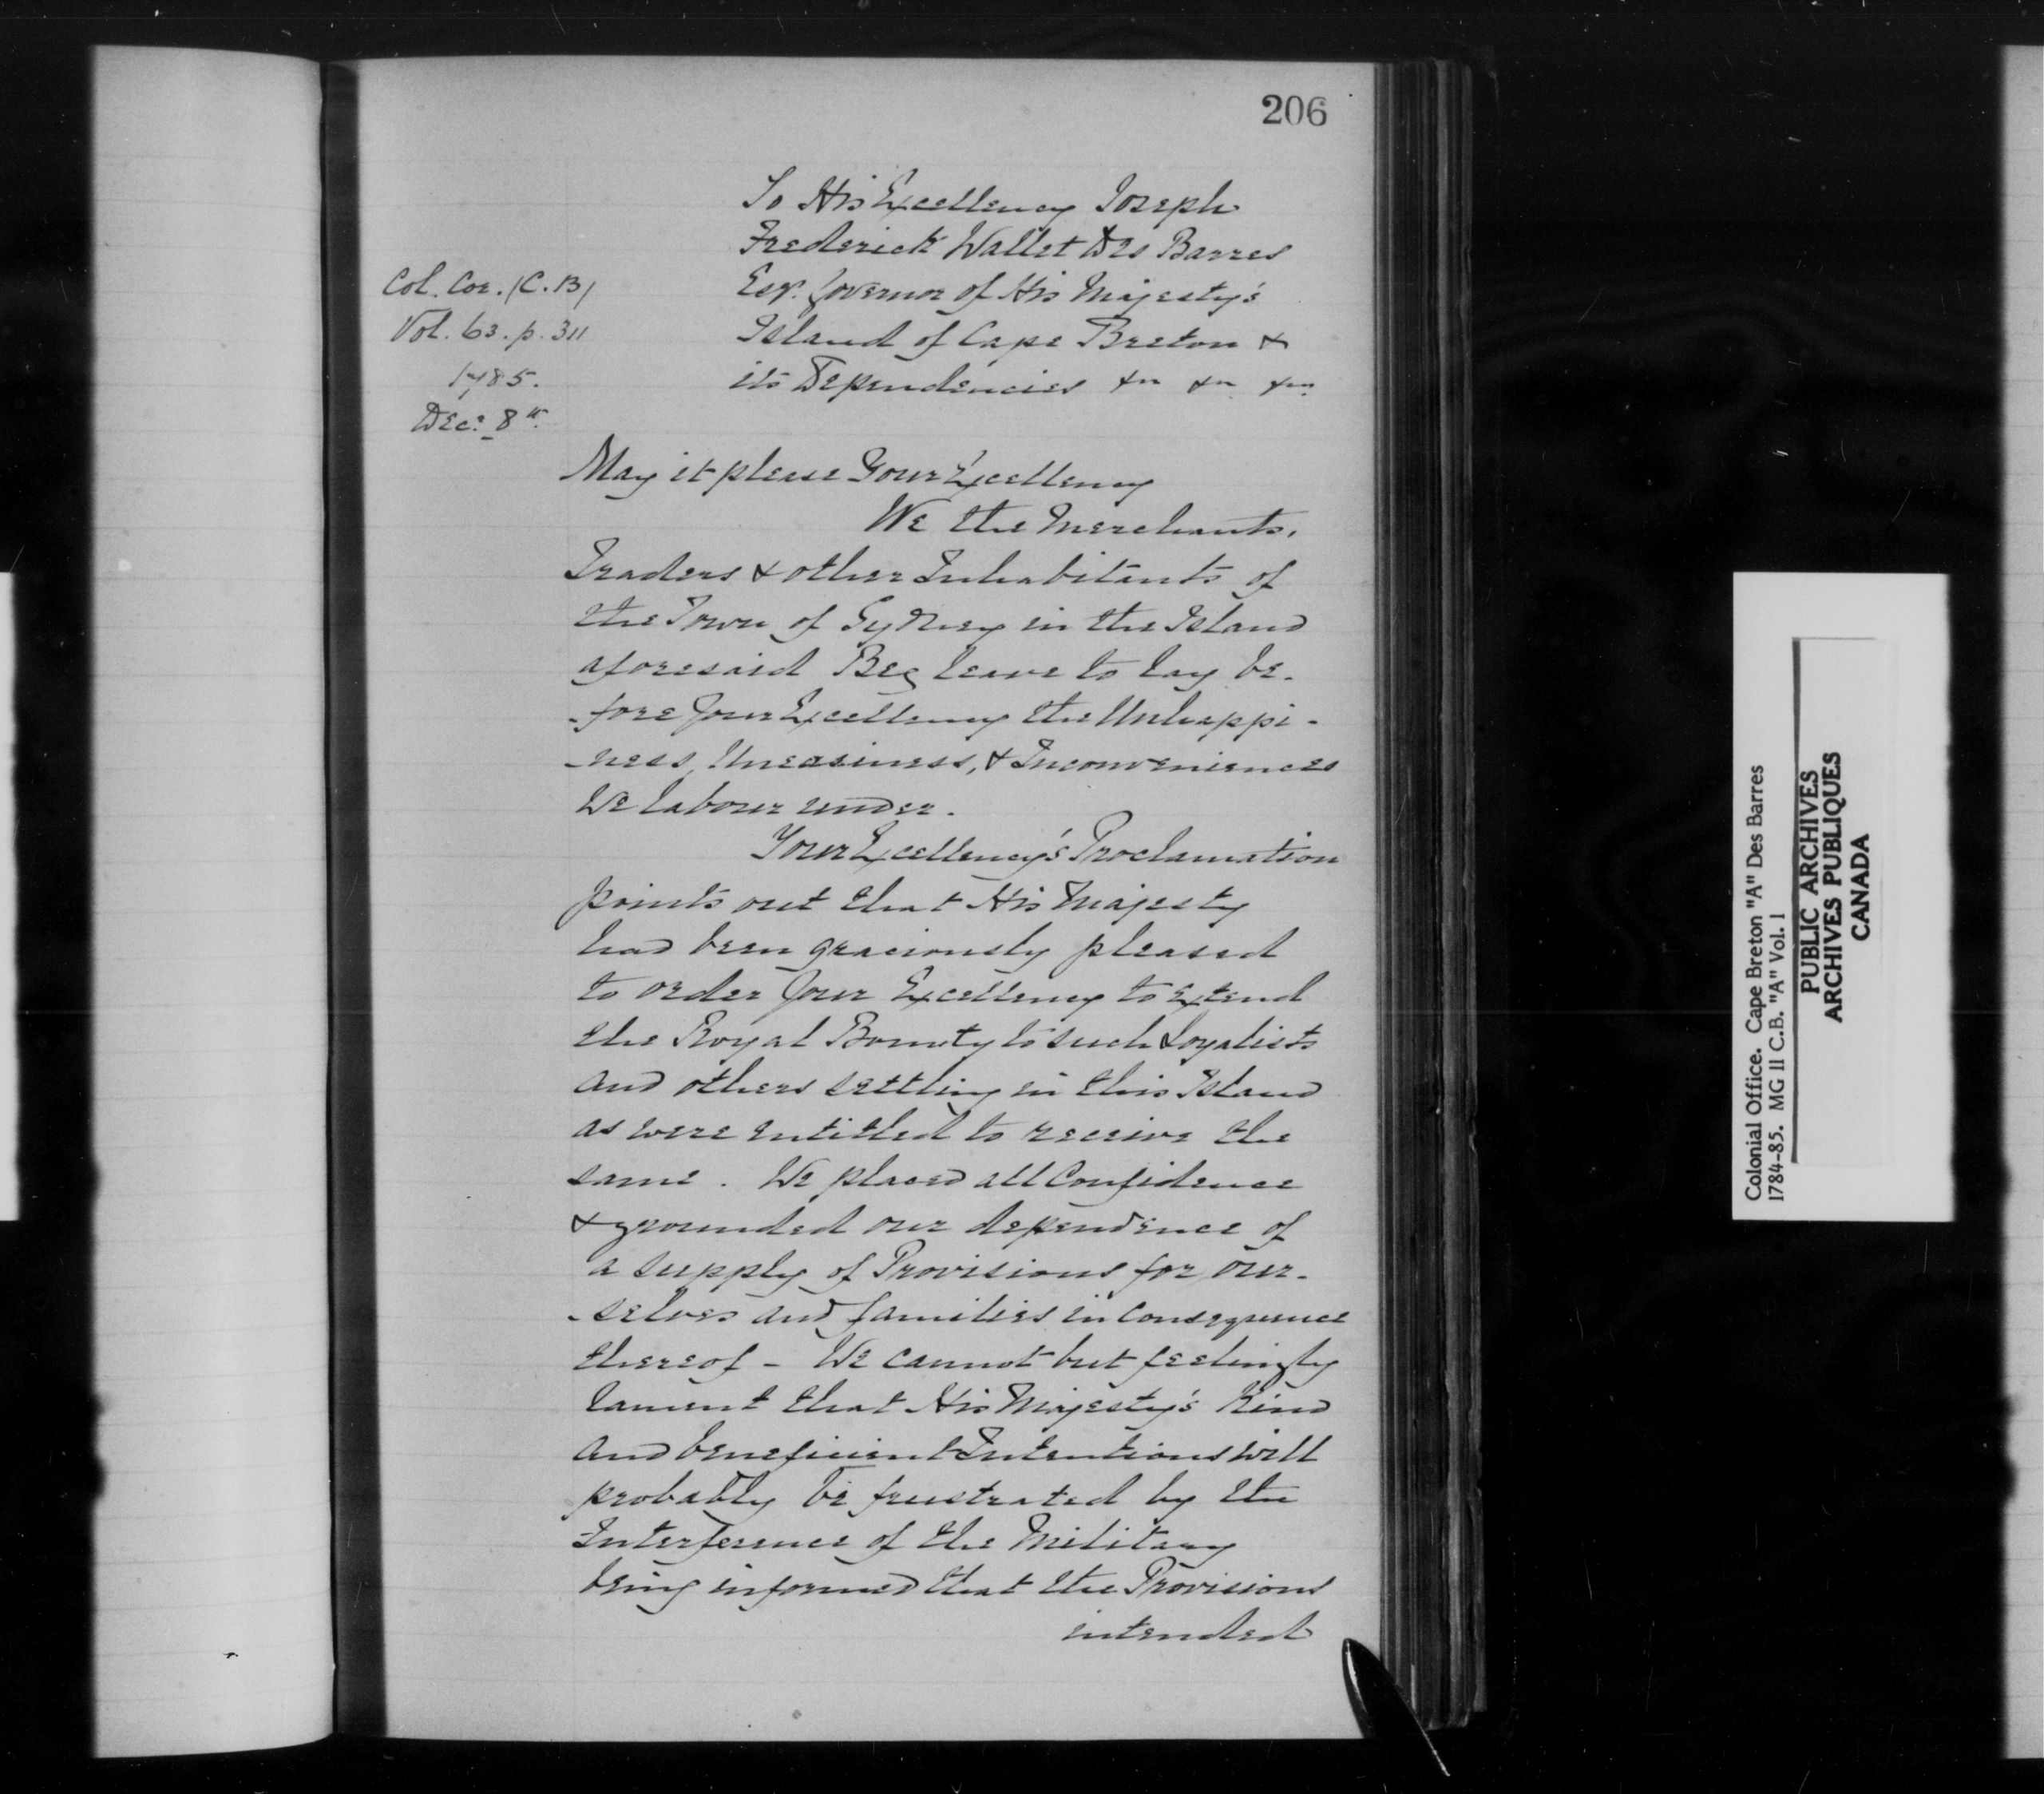 206
To His Excellency Joseph
Frederick Wallet Des Barres
Esqr. Governor of His Majesty's
Island of Cape Breton &
its Dependencies &c &c &c.
Col. Cor. (C.B)
Vol. 63. p. 311
1785.
Decr. 8th.
May it please Your Excellency
We the Merchants,
Traders & other Inhabitants of
the Town of Sydney in the Island
aforesaid Beg leave to lay be-
-fore Your Excellency the Unhappi-
-ness, Uneasiness, & Inconveniences
We labour under.
Your Excellency's Proclamation
points out that His Majesty
had been graciously pleased
to order Your Excellency to Extend
the Royal Bounty to such Loyalists
and others settling in this Island
as were entitled to receive the
same. We placed all Confidence
& grounded our dependence of
a supply of Provisions for our-
-selves and families in Consequence
thereof - We cannot but feelingly
lament that His Majesty's Kind
and beneficient Intentions will
probably be frustrated by the
Interference of the Military
being informed that the Provisions
intended
Colonial Office. Cape Breton "A" Des Barres
1784-85. MG 11 C.B. "A" Vol. 1
PUBLIC ARCHIVES
ARCHIVES PUBLIQUES
CANADA